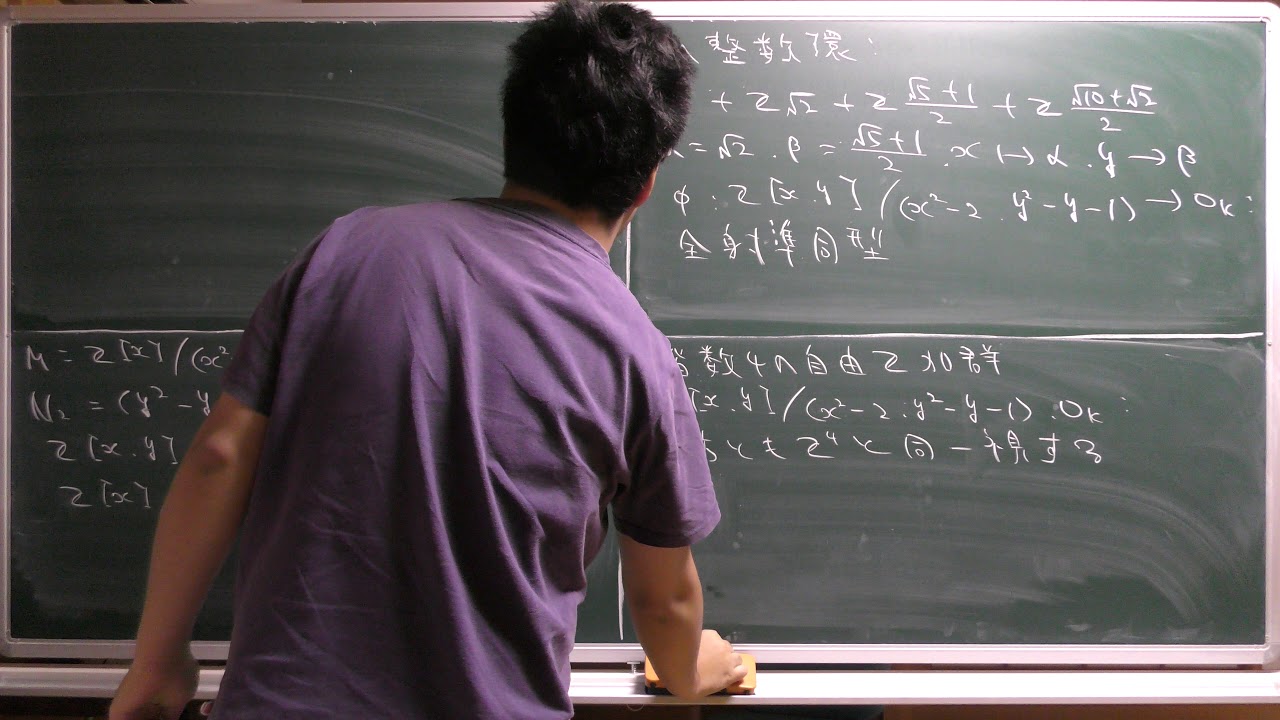 整数環:
+ Z√2 + Z (√5+1)/2 + Z (√10+√2)/2
= √2 . β = (√5+1)/2 . x ↦ α . y → β
φ : Z[x.y]/(x²-2 . y²-y-1) → OK :
全射準同型
M = Z[x]/(x²
N₂ = (y²-y
Z[x.y]
Z[x]
階数4の自由Z加群
[x.y]/(x²-2 . y²-y-1) . OK :
ちともZ⁴と同一視する